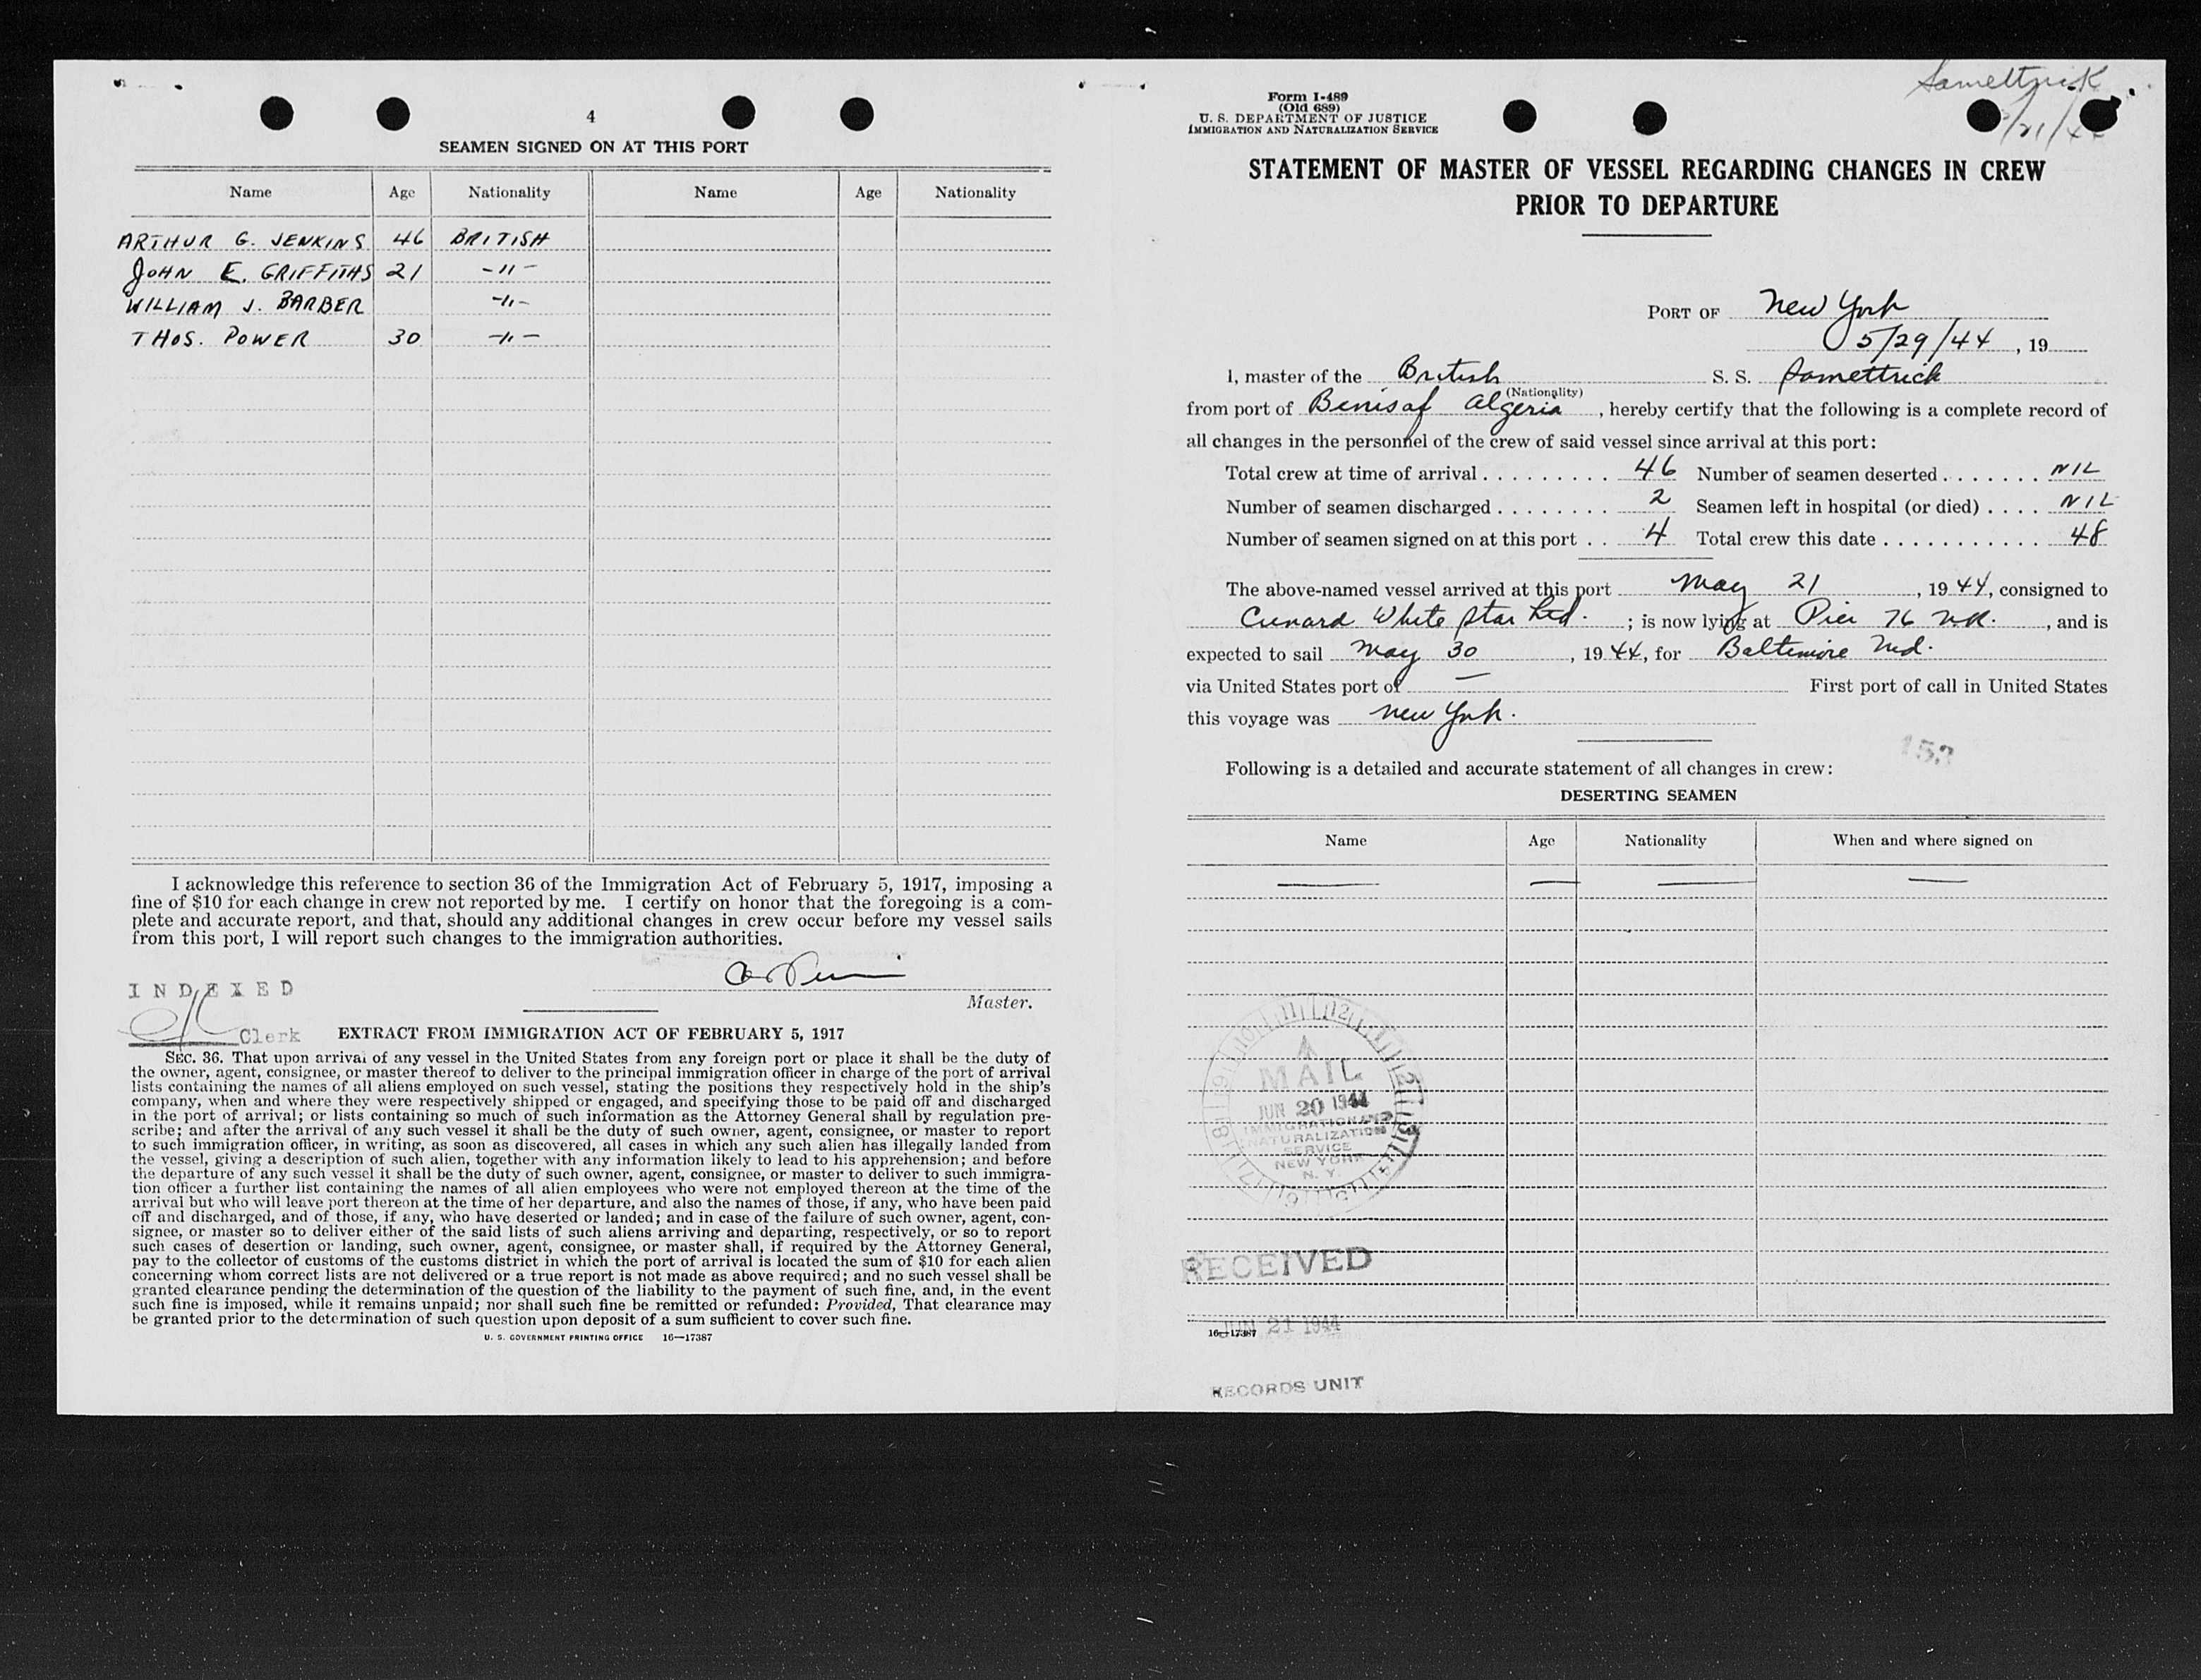 4
SEAMEN SIGNED ON AT THIS PORT
Name Age Nationality Name Age Nationality
ARTHUR G. JENKINS 46 BRITISH
JOHN E. GRIFFITHS 21 -"-
WILLIAM J. BARBER -"-
THOS. POWER 30 -"-
I acknowledge this reference to section 36 of the Immigration Act of February 5, 1917, imposing a
fine of $10 for each change in crew not reported by me. I certify on honor that the foregoing is a com-
plete and accurate report, and that, should any additional changes in crew occur before my vessel sails
from this port, I will report such changes to the immigration authorities.
Master.
INDEXED
Clerk
EXTRACT FROM IMMIGRATION ACT OF FEBRUARY 5, 1917
SEC. 36. That upon arrival of any vessel in the United States from any foreign port or place it shall be the duty of
the owner, agent, consignee, or master thereof to deliver to the principal immigration officer in charge of the port of arrival
lists containing the names of all aliens employed on such vessel, stating the positions they respectively hold in the ship's
company, when and where they were respectively shipped or engaged, and specifying those to be paid off and discharged
in the port of arrival; or lists containing so much of such information as the Attorney General shall by regulation pre-
scribe; and after the arrival of any such vessel it shall be the duty of such owner, agent, consignee, or master to report
to such immigration officer, in writing, as soon as discovered, all cases in which any such alien has illegally landed from
the vessel, giving a description of such alien, together with any information likely to lead to his apprehension; and before
the departure of any such vessel it shall be the duty of such owner, agent, consignee, or master to deliver to such immigra-
tion officer a further list containing the names of all alien employees who were not employed thereon at the time of the
arrival but who will leave port thereon at the time of her departure, and also the names of those, if any, who have been paid
off and discharged, and of those, if any, who have deserted or landed; and in case of the failure of such owner, agent, con-
signee, or master so to deliver either of the said lists of such aliens arriving and departing, respectively, or so to report
such cases of desertion or landing, such owner, agent, consignee, or master shall, if required by the Attorney General,
pay to the collector of customs of the customs district in which the port of arrival is located the sum of $10 for each alien
concerning whom correct lists are not delivered or a true report is not made as above required; and no such vessel shall be
granted clearance pending the determination of the question of the liability to the payment of such fine, and, in the event
such fine is imposed, while it remains unpaid; nor shall such fine be remitted or refunded: Provided, That clearance may
be granted prior to the determination of such question upon deposit of a sum sufficient to cover such fine.
U. S. GOVERNMENT PRINTING OFFICE 16—17387
Samettrick
Form I-489
(Old 689)
U. S. DEPARTMENT OF JUSTICE
IMMIGRATION AND NATURALIZATION SERVICE
STATEMENT OF MASTER OF VESSEL REGARDING CHANGES IN CREW
PRIOR TO DEPARTURE
PORT OF New York
5/29/44, 19
I, master of the British S. S. Samettrick
(Nationality)
from port of Benisaf Algeria, hereby certify that the following is a complete record of
all changes in the personnel of the crew of said vessel since arrival at this port:
Total crew at time of arrival . . . . . . . . . 46 Number of seamen deserted . . . . . . . NIL
Number of seamen discharged . . . . . . . . 2 Seamen left in hospital (or died) . . . . NIL
Number of seamen signed on at this port . . 4 Total crew this date . . . . . . . . . . . 48
The above-named vessel arrived at this port May 21, 1944, consigned to
Cunard White Star Ltd. ; is now lying at Pier 76 N.R., and is
expected to sail May 30, 1944, for Baltimore Md.
via United States port of — First port of call in United States
this voyage was New York.
153
Following is a detailed and accurate statement of all changes in crew:
DESERTING SEAMEN
Name Age Nationality When and where signed on
MAIL
JUN 20 1944
IMMIGRATION AND
NATURALIZATION
SERVICE
NEW YORK
N. Y.
RECEIVED
JUN 21 1944
16—17387
RECORDS UNIT